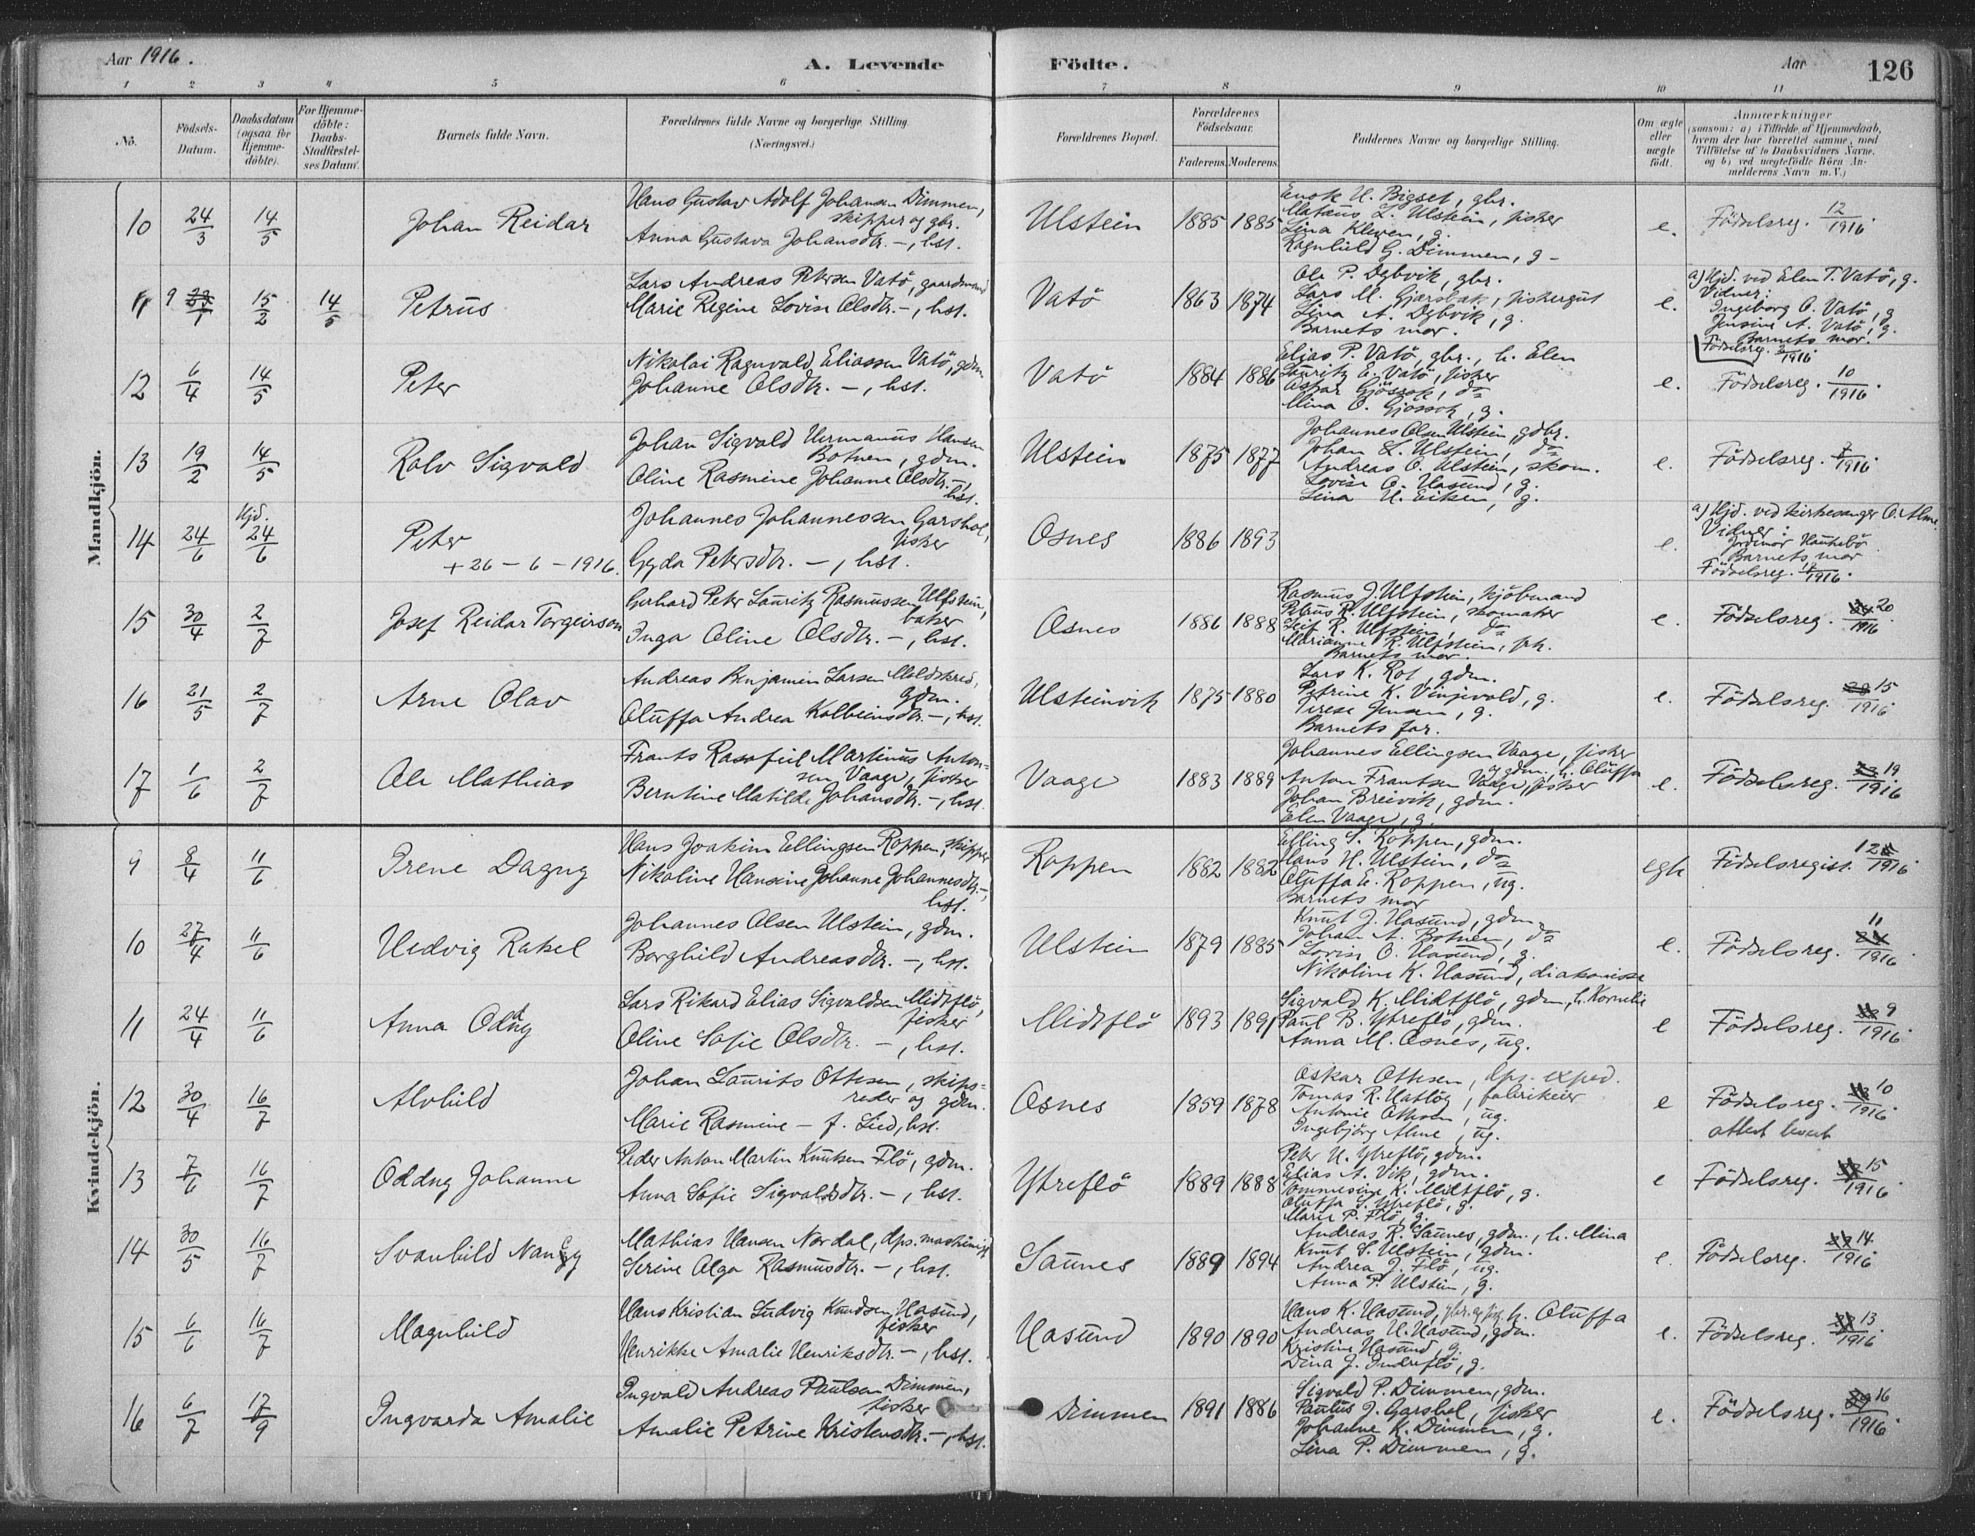 Aar 1916.
A. Levende Födte.
Aar
126
1 2 3 4 5 6 7 8 9 10 11
No.
Födsels-Datum.
Daabsdatum (ogsaa for Hjemme-döbte).
For Hjemme-döbte: Daabs-Stadfæstel-ses Datum.
Barnets fulde Navn.
Forældrenes fulde Navne og borgerlige Stilling (Næringsvei.)
Forældrenes Bopæl.
Forældrenes Födselsaar.
Faderens. Moderens.
Faddernes Navne og borgerlige Stilling.
Om ægte eller uægte födt.
Anmærkninger
(saasom: a) i Tilfælde af Hjemmedaab, hvem der har forrettet samme, med Tilföielse af to Daabsvidners Navne, og b) ved uægtefödte Börn An-melderens Navn m. V.)
Mandkjön.
10 24/3 14/5 Johan Reidar
Hans Gustav Adolf Johansen Dimmen,
skipper og gbr.
Anna Gustava Johansdtr. —, hst.
Ulstein 1885 1885
Enok H. Bigset, gbr.
Mataus L. Ulstein, fisker
Lina Kleven, g.
Ragnhild G. Dimmen, g —
e. Födselsreg. 12/1916.
9 15/2 14/5 Petrus
Lars Andreas Petersen Vatö, gaardmand
Marie Regine Lovise Olsdtr. —, hst.
Vatö 1863 1874
Ole P. Dybvik, gbr.
Lars M. Gjersbak, fiskergut
Lina A. Dybvik, g.
Barnets mor.
e. a) Hjd. ved Elen T. Vatö, g.
Vidner:
Ingeborg O. Vatö, g
Jensine A. Vatö, g.
Barnets mor.
Födselsreg. 2/1916
12 6/4 14/5 Peter
Nikolai Ragnvald Eliassen Vatö, gdm.
Johanne Olsdtr. —, hst.
Vatö 1884 1886
Elias P. Vatö, gbr., h. Elen
Lauritz E. Vatö, fisker
Oskar Gjössok, do
Mina O. Gjössok, g.
e. Födselsreg. 10/1916.
13 19/2 14/5 Rolv Sigvald
Johan Sigvald Hermanus Hansen
Botnen, gdm.
Oline Rasmine Johanne Olsdtr. —,
hst.
Ulstein 1875 1877
Johannes Olsen Ulstein, gdbr.
Johan L. Ulstein, do
Andreas O. Ulstein, skom.
Lovise O. Hasund, g.
Lina H. Eiken, g.
e. Födselsreg. 7/1916.
14 24/6 Hjd. 24/6 Peter
+ 26 – 6 – 1916.
Johannes Johannessen Garshol,
fisker
Gyda Petersdtr. —, hst.
Osnes 1886 1893
e. a) Hjd. ved kirkesanger O. Alme.
Vidner:
Jordmor Haukebö
Barnets mor
Födselsreg. 17/1916.
15 30/4 2/7 Josef Reidar Torgeirson
Gerhard Peter Lauritz Rasmussen Ulfstein,
baker
Inga Oline Olsdtr. —, hst.
Osnes 1886 1888
Rasmus J. Ulfstein, kjöbmand
Petrus R. Ulfstein, skomaker
Leif R. Ulfstein, do
Marianne R. Ulfstein, frk.
Barnets mor.
e. Födselsreg. 20/1916.
16 21/5 2/7 Arne Olav
Andreas Benjamin Larsen Meldskred,
gdm.
Oluffa Andrea Kolbeinsdtr. —, hst.
Ulsteinvik 1875 1880
Lars K. Rot, gdm.
Petrine K. Vinjevold, g.
Terese Jensen, g.
Barnets far.
e. Födselsreg. 15/1916
17 1/6 2/7 Ole Mathias
Frants Rasofiel Martinus Anton-
sen Vaage, fisker
Berntine Matilde Johansdtr. —, hst.
Vaage 1883 1889
Johannes Ellingsen Vaage, fisker
og gdm. h. Oluffa
Anton Frantsen Vaage, fisker
Johan Breivik, gdm.
Elen Vaage, g.
e. Födselsreg. 19/1916
Kvindekjön.
9 8/4 11/6 Irene Dagny
Hans Joakim Ellingsen Roppen, skipper
Nikoline Hansine Johanne Johannesdtr. —,
hst.
Roppen 1882 1882
Elling S. Roppen, gdm.
Hans H. Ulstein, do
Oluffa E. Roppen, ug.
Barnets mor
egte Födselsregist. 12/1916.
10 27/4 11/6 Hedvig Rakel
Johannes Olsen Ulstein, gdm.
Borghild Andreasdtr. —, hst.
Ulstein 1879 1885
Knut J. Hasund, gdm.
Johan A. Botnen, do
Lovise O. Hasund, g.
Nikoline K. Hasund, diakonisse
e. Födselsreg. 11/1916.
11 24/4 11/6 Anna Oddny
Lars Rikard Elias Sigvaldsen Midtflö,
fisker
Oline Sofie Olsdtr. —, hst.
Midtflö 1893 1891
Sigvald K. Midtflö, gdm., h. Kornelie
Paul B. Ytreflö, gdm.
Anna M. Osnes, ug.
e Födselsreg. 9/1916.
12 30/4 16/7 Alvhild
Johan Laurits Ottesen, skibs-
reder og gdm.
Marie Rasmine — f. Lied, hst.
Osnes 1859 1878
Oskar Ottesen, dps. exped.
Tomas R. Hatlöy, fabrikeier
Antonie Ottesen, ug.
Ingebjörg Alme, ug.
e Födselsreg. 10/1916.
attest levert
13 7/6 16/7 Oddny Johanne
Peder Anton Martin Knutsen Flö, gdm.
Anna Sofie Sigvaldsdtr. —, hst.
Ytreflö 1889 1888
Petr H. Ytreflö, gdm.
Elias A. Vik, gdm.
Tommesine K. Midtflö, g.
Oluffa S. Ytreflö, g.
Marie P. Flö, g.
e Födselsreg. 15/1916.
14 30/5 16/7 Svanhild Nancy
Mathias Hansen Nordal, dps. maskinist
Serine Olga Rasmusdtr. —, hst.
Saunes 1889 1894
Andreas R. Saunes, gdm., h. Mina
Knut S. Ulstein, gdm.
Andrea J. Flö, ug.
Anna P. Ulstein, g.
e. Födselsreg. 14/1916.
15 6/6 16/7 Magnhild
Hans Kristian Ludvig Knudsen Hasund,
fisker
Henrikke Amalie Henriksdtr. —, hst.
Hasund 1890 1890
Hans K. Hasund, gbr. og fisk. h. Oluffa
Andreas H. Hasund, gdm.
Kristine Hasund, g.
Dina J. Indreflö, g.
e. Födselsreg. 13/1916.
16 6/7 17/9 Ingvarda Amalie
Ingvald Andreas Paulsen Dimmen,
fisker
Amalie Petrine Kristensdtr. —, hst.
Dimmen 1891 1886
Sigvald P. Dimmen, gdm.
Paulus J. Garshol, fisker
Johanne K. Dimmen, g.
Lina P. Dimmen, g.
e. Födselsreg. 16/1916.